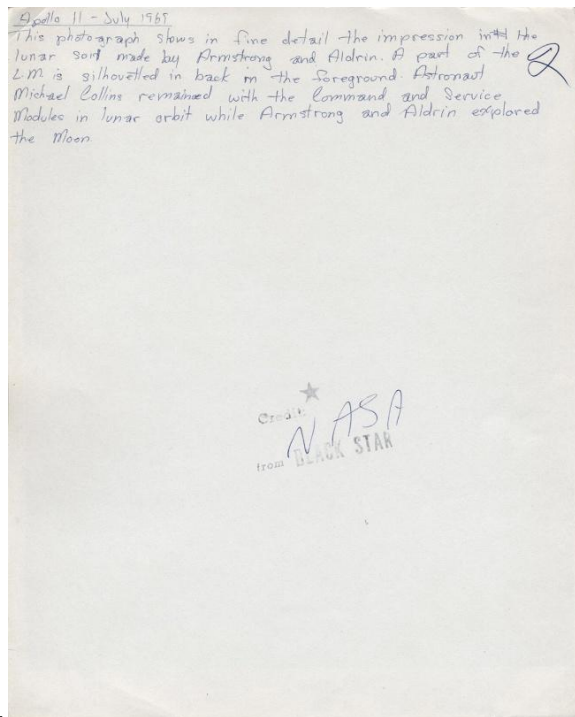 Apollo 11 - July 1969
This photograph shows in fine detail the impression into the
lunar soil made by Armstrong and Aldrin. A part of the
L.M. is silhouetted in back in the foreground. Astronaut
Michael Collins remained with the Command and Service
Modules in lunar orbit while Armstrong and Aldrin explored
the Moon.
2
Credit:
NASA
from BLACK STAR